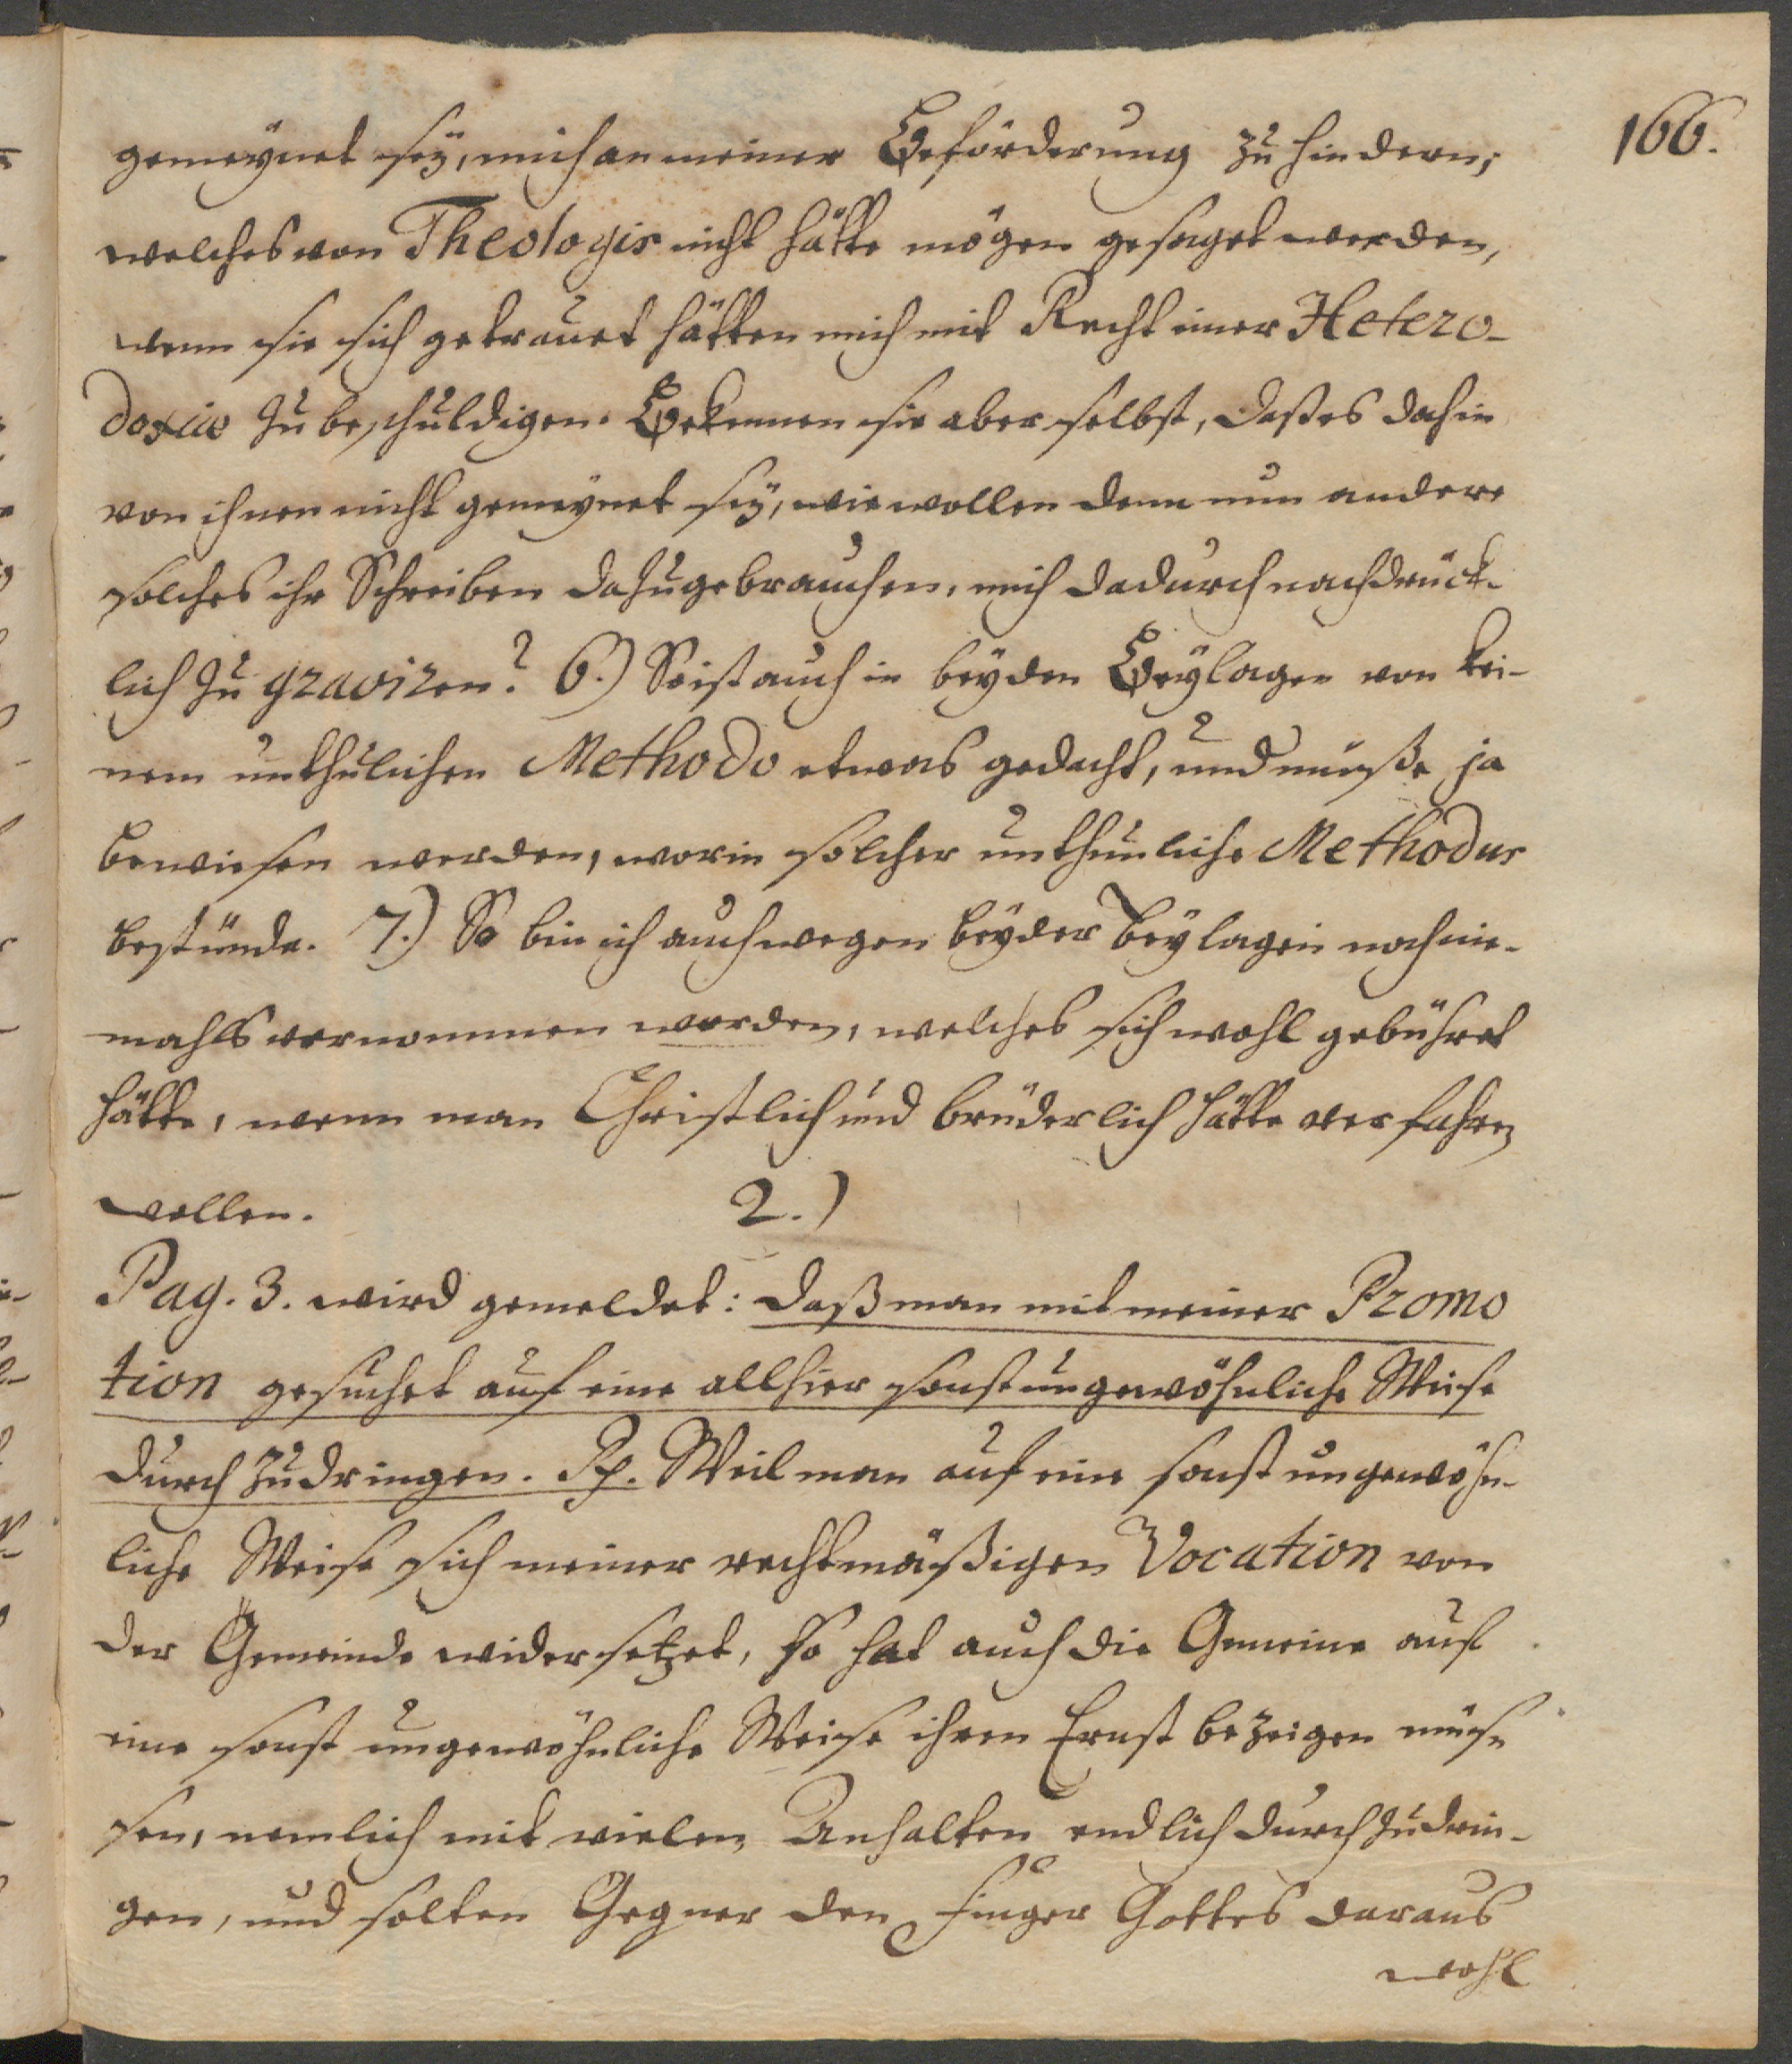 166.
gemeÿnet seÿ, mich an meiner Beförderung zu hindern;
welches von Theologis nicht hätte mögen gesaget werden,
wenn sie sich getrauet hätten mich mit Recht einer Hetero-
doxie zu beschuldigen. Bekennen sie aber selbst, daß es dahin
von ihnen nicht gemeÿnet seÿ, wie wollen denn nun andere
solches ihr Schreiben dazu gebrauchen, mich dadurch nachdrück-
lich zu graviren? 6.) So ist auch in beyden Beÿlagen von kei-
nem unthulichen Methodo etwas gedacht, und müße ja
bewiesen werden, worin solcher unthunliche Methodus
bestünde. 7.) So bin ich auch wegen beÿder Beÿlagen noch nie-
mahls vernommen worden, welches sich wohl gebühret
hätte, wenn man Christlich und brüderlich hätte verfahren
wollen.
2.)
Pag. 3. wird gemeldet: daß man mit meiner Promo
tion gesuchet auf eine allhier sonst ungewöhnliche Weise
durch zu dringen. Rp. Weil man auf eine sonst ungewöhn-
liche Weise sich meiner rechtmäßigen Vocation von
der Gemeinde widersetzet, so hat auch die Gemeine auf
eine sonst ungewöhnliche Weise ihren Ernst bezeigen müs-
sen, nemlich mit vielen Anhalten endlich durch zu drin-
gen, und solten Gegner den Finger Gottes daraus
wohl